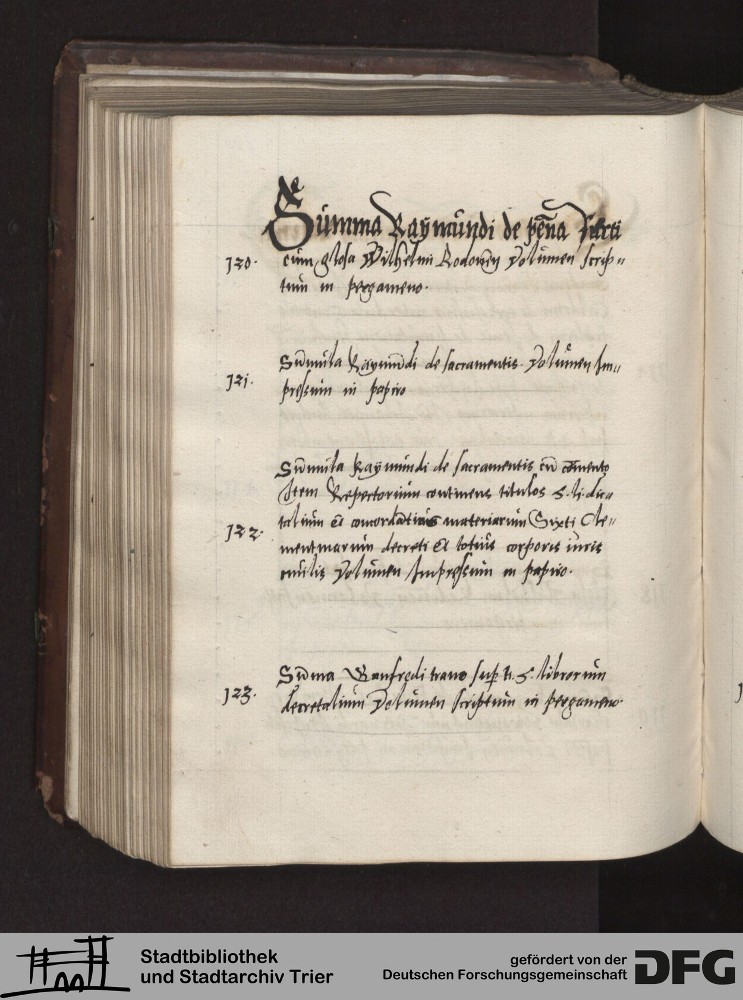 Summa Raymundi de peña
120. cum glosa Wilhelmi volumen scrip-
tum in pergameno.
121. Sum̄ula Raymu̅di de sacramentis Volumen Im-
pressum in papiro
Sum̄ula Raymundi de sacramentis cū com̄ento
Item Repertorium continens titulos 5. li. dec-
talium et concordātius materiarum Sixti Cle-
122. mentinarum decreti et totius corporis iuris
ciuilis Volumen Impressum in papiro.
123. Sum̄a super ti. 5. librorum
decretalium Volumen scriptum in pergameno.
Stadtbibliothek
und Stadtarchiv Trier
gefördert von der
Deutschen Forschungsgemeinschaft
DFG